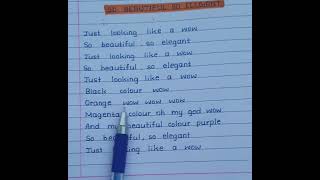 SO BEAUTIFUL SO ELEGANT
Just looking like a wow
So beautiful, so elegant
Just looking like a wow
So beautiful, so elegant
Just looking like a wow
Black colour wow
Orange wow wow wow
Magenta colour oh my god wow
And my beautiful colour purple
So beautiful, so elegant
Just looking like a wow